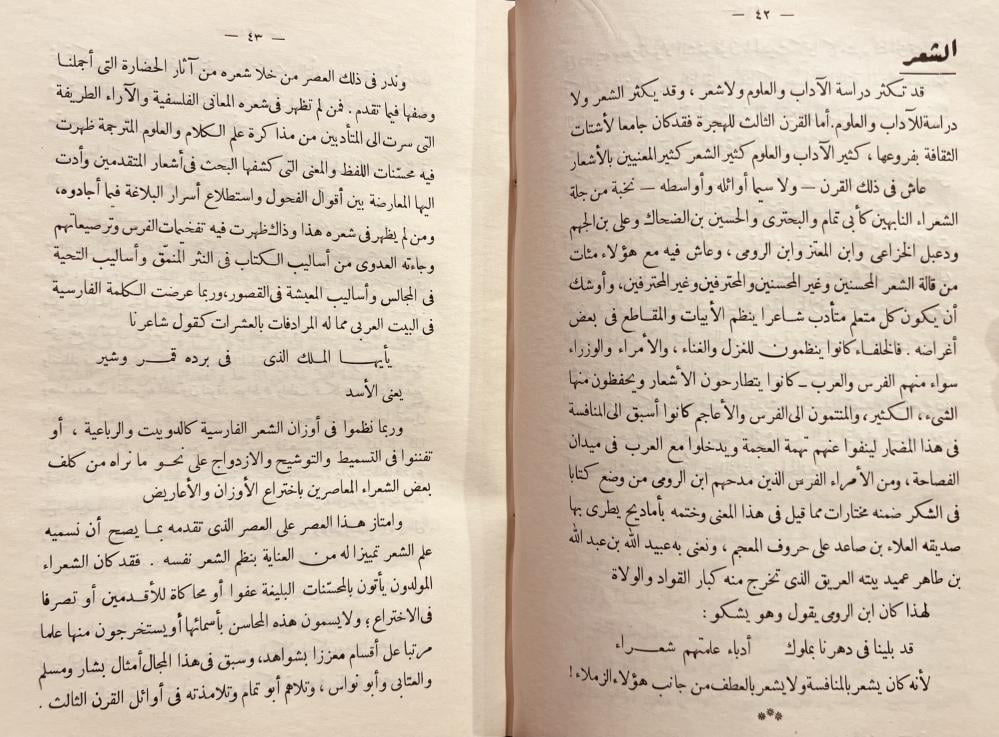 — ٤٢ —
الشعر
قد تكثر دراسة الآداب والعلوم ولاشعر ، وقد يكثر الشعر ولا
دراسة للآداب والعلوم. أما القرن الثالث للهجرة فقد كان جامعا لأشتات
الثقافة بفروعها ، كثير الآداب والعلوم كثير الشعر كثير المعنيين بالأشعار
عاش فى ذلك القرن — ولا سيما أوائله وأواسطه — نخبة من جلة
الشعراء النابهين كأبى تمام والبحترى والحسين بن الضحاك وعلى بن الجهم
ودعبل الخزاعى وابن المعتز وابن الرومى ، وعاش فيه مع هؤلاء مئات
من قالة الشعر المحسنين وغير المحسنين والمحترفين وغير المحترفين، وأوشك
أن يكون كل متعلم متأدب شاعرا ينظم الأبيات والمقاطع فى بعض
أغراضه . فالخلفاء كانوا ينظمون للغزل والغناء ، والأمراء والوزراء
سواء منهم الفرس والعرب — كانوا يتطارحون الأشعار ويحفظون منها
الشىء ، الكثير، والمنتمون الى الفرس والأعاجم كانوا أسبق الى المنافسة
فى هذا المضمار لينفوا عنهم تهمة العجمة ويدخلوا مع العرب فى ميدان
الفصاحة ، ومن الأمراء الفرس الذين مدحهم ابن الرومى من وضع كتابا
فى الشكر ضمنه مختارات مما قيل فى هذا المعنى وختمه بأماديح يطرى بها
صديقه العلاء بن صاعد على حروف المعجم ، ونعنى به عبيد الله بن عبد الله
بن طاهر عميد بيته العريق الذى تخرج منه كبار القواد والولاة
لهذا كان ابن الرومى يقول وهو يشكو :
قد بلينا فى دهرنا بملوك أدباء علمتهم شعـــراء
لأنه كان يشعر بالمنافسة ولا يشعر بالعطف من جانب هؤلاء الزملاء !
***
— ٤٣ —
وندر فى ذلك العصر من خلا شعره من آثار الحضارة التى أجملنا
وصفها فيما تقدم . فمن لم تظهر فى شعره المعانى الفلسفية والآراء الطريفة
التى سرت الى المتأدبين من مذاكرة علم الكلام والعلوم المترجمة ظهرت
فيه محسّنات اللفظ والمعنى التى كشفها البحث فى أشعار المتقدمين وأدت
اليها المعارضة بين أقوال الفحول واستطلاع أسرار البلاغة فيما أجادوه،
ومن لم يظهر فى شعره هذا وذاك ظهرت فيه تفخيمات الفرس وترصيعاتهم
وجاءته العدوى من أساليب الكتاب فى النثر المنمّق وأساليب التحية
فى المجالس وأساليب المعيشة فى القصور، وربما عرضت الكلمة الفارسية
فى البيت العربى مما له المرادفات بالعشرات كقول شاعرنا
يأيهـا المـلك الذى فى برده قمـر وشير
يعنى الأسد
وربما نظموا فى أوزان الشعر الفارسية كالدوبيت والرباعية ، أو
تفننوا فى التسميط والتوشيح والازدواج على نحـو ما نراه من كلف
بعض الشعراء المعاصرين باختراع الأوزان والأعاريض
وامتاز هـذا العصر على العصر الذى تقدمه بمـا يصح أن نسميه
علم الشعر تمييزا له مـن العناية بنظم الشعر نفسه . فقد كان الشعراء
المولدون يأتون بالمحسّنات البليغة عفوا أو محاكاة للأقدمين أو تصرفا
فى الاختراع ؛ ولا يسمون هذه المحاسن بأسمائها أو يستخرجون منها علما
مرتبا على أقسام معززا بشواهد، وسبق فى هذا المجال أمثال بشار ومسلم
والعتابى وأبو نواس ، وتلاهم أبو تمام وتلامذته فى أوائل القرن الثالث .